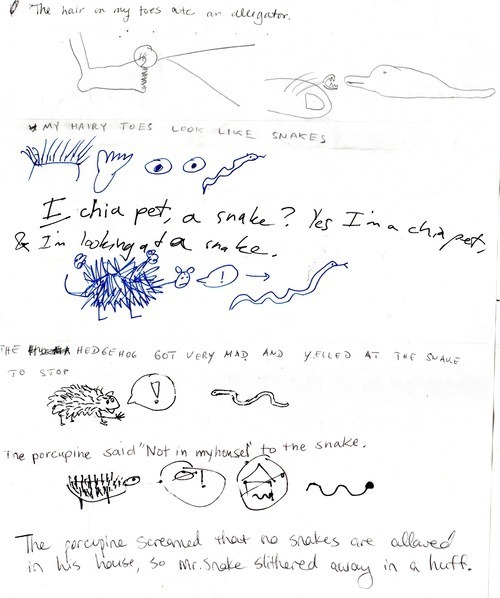 The hair on my toes ate an alligator.
MY HAIRY TOES LOOK LIKE SNAKES
I, chia pet, a snake? Yes I'm a chia pet,
& I'm looking at a snake.
!
THE HEDGEHOG GOT VERY MAD AND YELLED AT THE SNAKE
TO STOP
!
The porcupine said "Not in my house!" to the snake.
!
The porcupine screamed that no snakes are allowed
in his house, so Mr. Snake slithered away in a huff.